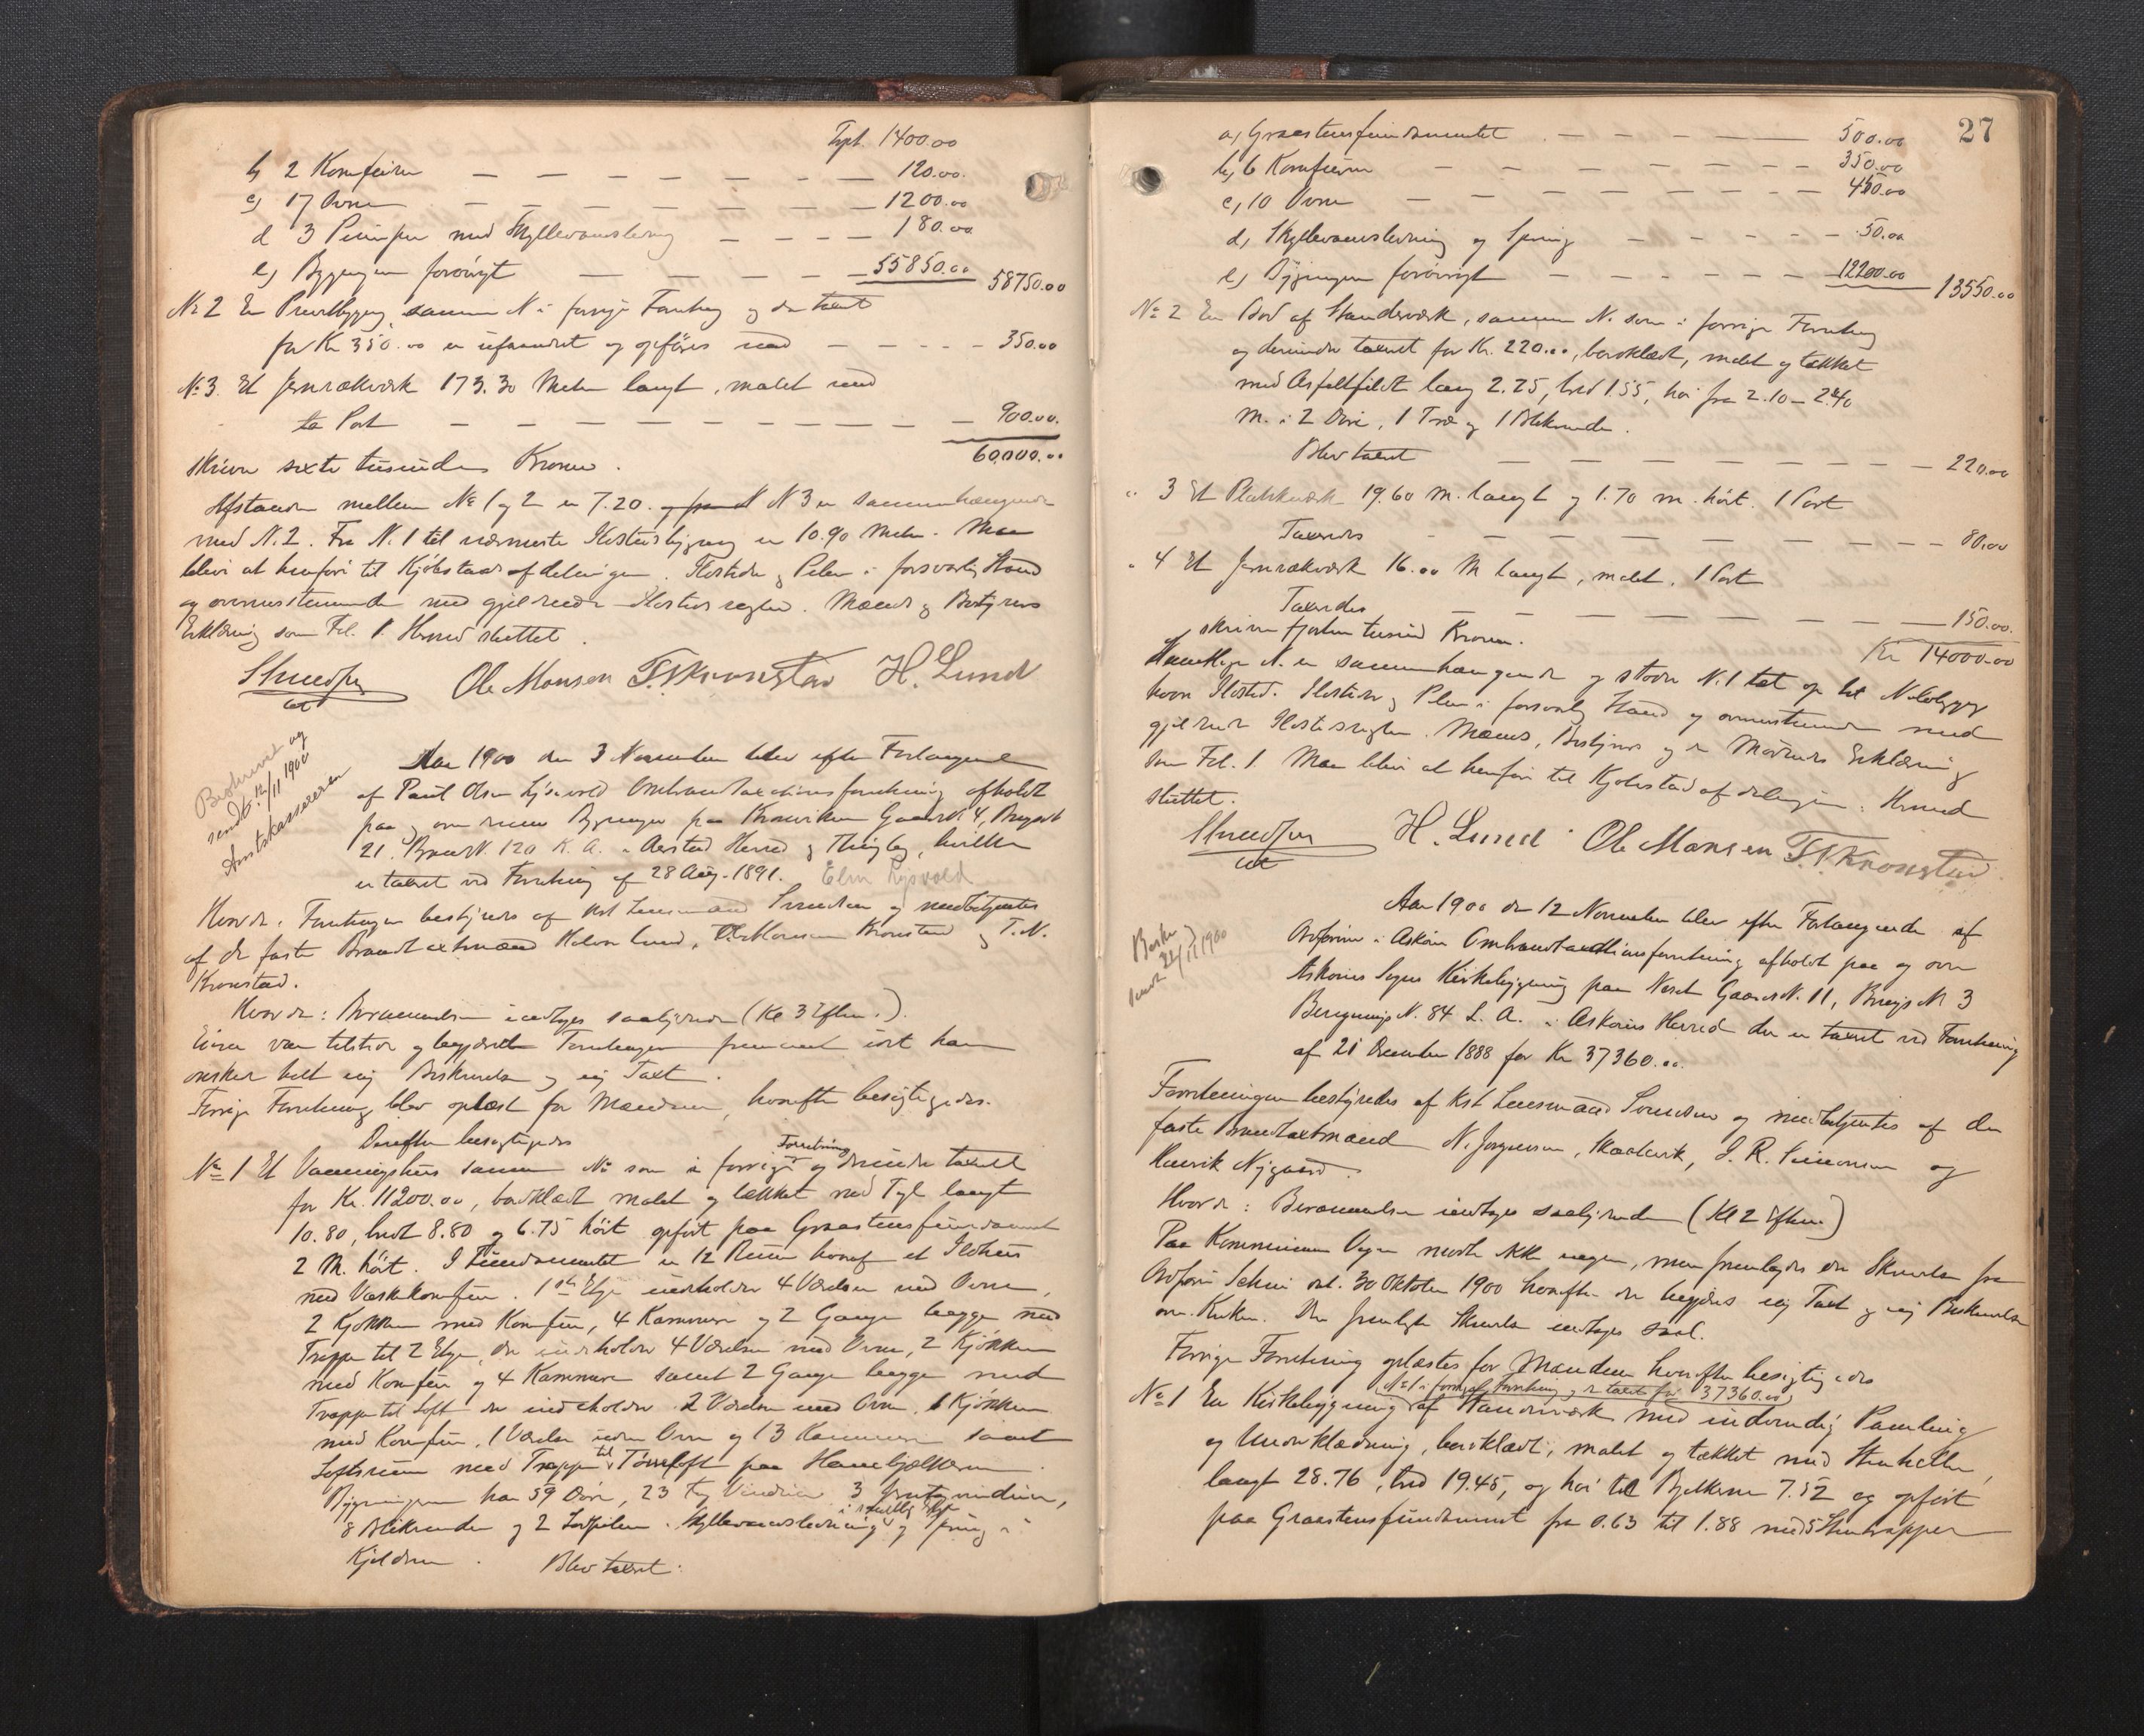 Tpt. 1400.00
b, 2 Komfurer — — — — — — — 120.00
c, 17 Ovne — — — — — — — 1200.00
d 3 Pumper med Skyllevandsledning — — — — 180.00
e, Bygningen forøvrigt — — — — 55850.00 58750.00
No 2 En Privetbygning, samme N i forrige Forretning og der taxt
for Kr 350.00 er uforandret og opføres med — — — — 350.00
No 3. Et Jernrækværk 173.30 Meter langt, malet med
to Port — — — — — — — — — 900.00.
60.000.00
skriver sexti tusinde Kroner.
Afstanden mellem No 1 og 2 er 7.20. N 3 er sammenhængende
med N. 2. Fra N. 1 til nærmeste Ildstedsbygning er 10.90 Meter. Man
blev at henføre til Kjøbstadsafdelingen. Ildsteder og Piber i forsvarlig Stand
og overensstemmende med gjeldende Ildstedsregler. Mænds og Bestyrers
Erklæring som Fol. 1. Hermed sluttet.
Ole Monsen T. N. Kronstad H. Lund
Beskrevet og
sendt 12/11 1900
Amtskassereren
Aar 1900 den 3 November blev efter Forlangende
af Paul Olsen Lysevold Ombrandtaxationsforretning afholdt
paa og over dennes Bygninger paa Kronviken Gaards N. 4, Brugs N.
21. Brand N. 120 K. A. i Aarstad Herred og Thinglag, hvilke
er taxeret ved Forretning af 28 Aug. 1891. Elen Lysvold
Hvorda. Forretningen bestyredes af Kst Lensmand Svendsen og medbetjentes
af de faste Brandtaxtmænd Halvor Lund, Ole Monsen Kronstad og T. N.
Kronstad.
Hvorda: Berammelsen indtages saalydende (Kl 3 Eftm.).
Eieren var tilstede og begjærede Forretningen fremmet idet han
ønsker helt ny Beskrivelse og ny Taxt.
Forrige Forretning blev oplæst for Mændene, hvorefter besigtigedes.
Derefter besigtigedes
Forretning
No 1 Et Vaaningshus samme No som i forrige og derunder taxeret
for Kr. 11200.00, bordklædt malet og tækket med Tegl langt
10.80, bredt 8.80 og 6.75 høit opført paa Graastensfundament
2 M. høit. I Fundamentet er 12 Rum hvoraf et Ildhus
med Vaskekomfur. 1ste Etage indeholder 4 Værelser med Ovne,
2 Kjøkken med Komfur, 4 Kammere og 2 Gange begge med
Trappe til 2 Etage, der indeholder 4 Værelser med Ovne, 2 Kjøkken
med Komfur og 4 Kammere samt 2 Gange begge med
Trappe til Loft der indeholder 2 Værelser med Ovn, 1 Kjøkken
med Komfur, 1 Værelse uden Ovn og 13 Kammere samt
Loftsrum med Trappe til Tørreloft paa Hanebjelkerne.
Bygningen har 59 Døre, 23 Fag Vinduer 3 Grubevinduer,
i samtlige Etager
8 Blikrender og 2 Jordpiber. Skyllevandsledning og Spring i
Kjelderen. Blev taxeret:
27
a, Graastensfundamentet — — — — 500.00
b, 6 Komfurer — — — — — — 350.00
c, 10 Ovne — — — — — — — 450.00
d, Skyllevandsledning og Spring — — — — 50.00
e, Bygningen forøvrigt — — — — — 12200.00 13550.00
No 2 En Bod af Standerværk, samme N. som i forrige Forretning
og derunder taxeret for Kr. 220.00, bordklædt, malet og tækket
med Asfaltfildt lang 2.25, bred 1.55, høi fra 2.10 — 2.40
M. i 2 Døre, 1 Træ og 1 Blikrende.
Blev taxeret — — — — — — — — 220.00
" 3 Et Plankeværk 19.60 M. langt og 1.70 m. høit. 1 Port
Taxeredes — — — — — — — — 80.00
" 4 Et Jernrækværk 16.00 M langt, malet. 1 Port
Taxeredes — — — — — — — — 150.00.
skriver fjorten tusind Kroner. Kr 14000.00
Samtlige N. er sammenhængende og støder N. 1 tæt op til Nabobygning
hvori Ildsted. Ildsteder og Piber i forsvarlig Stand og overensstemmende med
gjeldende Ildstedsregler. Mænds, Bestyrers og de Mødendes Erklæring
som Fol. 1. Man blev at henføre til Kjøbstadsafdelingen. Hermed
sluttet.
H. Lund Ole Monsen T. N. Kronstad.
Beskr. og
sendt 22/11 1900
Aar 1900 den 12 November blev efter Forlangende af
Ordføreren i Askøen Ombrandtaxationsforretning afholdt paa og over
Askøens Sogns Kirkebygning paa Gaards N. 11, Brugs N 3
Bergnings N. 84 L. A. i Askøens Herred der er taxeret ved Forretning
af 21 December 1888 for Kr 37360.00.
Forretningen bestyredes af Kst Lensmand Svendsen og medbetjentes af de
faste Brandtaxtmænd N. Jørgensen, Skaalevik, J. R. Simonsen og
Henrik Nygaard.
Hvorda: Berammelsen indtages saalydende (Kl 2 Eftm.)
Paa Kommunens Vegne mødte ikke nogen, men fremlagdes en Skrivelse fra
Ordfører dat. 30 Oktober 1900 hvorefter der begjæres ny Taxt og ny Beskrivelse
over Kirken. Den fremlagte Skrivelse indtages saal.
Forrige Forretning oplæstes for Mændene hvorefter besigtigedes
(No 1 i forrige Forretning og er taxeret for 37360.00)
No 1 En Kirkebygning af Standerværk med indvendig Paneling
og Underklædning, bordklædt, malet og tækket med Stenheller,
langt 28.76, bred 19.45, og høi til Bjelkerne 7.52 og opført
paa Graastensfundament fra 0.63 til 1.88 med 5 Stentrapper